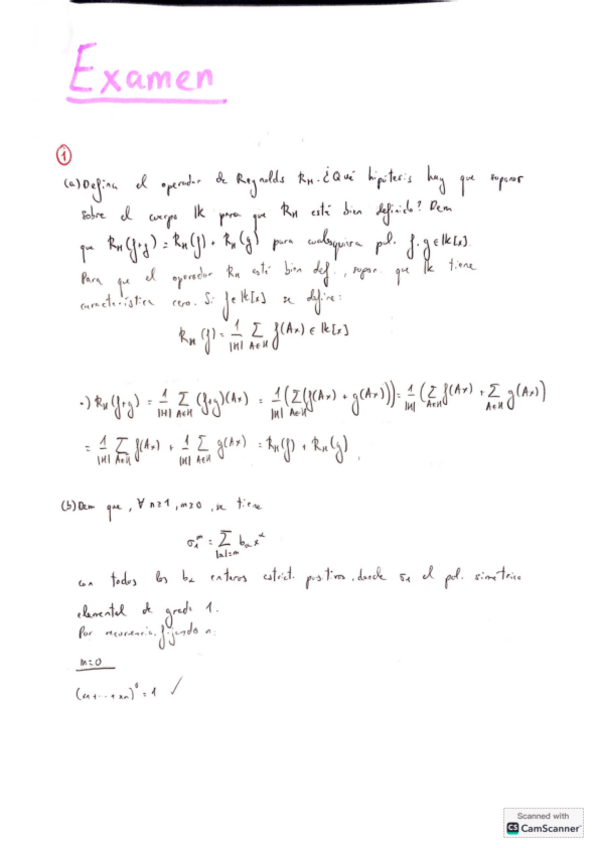 Examen
1
(a) Defina el operador de Reynolds R_H. ¿Qué hipótesis hay que suponer
sobre el cuerpo lK para que R_H esté bien definido? Dem
que R_H(f+g) = R_H(f) + R_H(g) para cualesquiera pol. f, g ∈ lK[x].
Para que el operador R_H esté bien def., supon. que lK tiene
característica cero. Si f ∈ lK[x] se define:
R_H(f) = 1/|H| Σ_{A∈H} f(Ax) ∈ lK[x]
·) R_H(f+g) = 1/|H| Σ_{A∈H} (f+g)(Ax) = 1/|H| (Σ(f(Ax) + g(Ax))) = 1/|H| (Σ_{A∈H} f(Ax) + Σ_{A∈H} g(Ax))
= 1/|H| Σ_{A∈H} f(Ax) + 1/|H| Σ_{A∈H} g(Ax) = R_H(f) + R_H(g).
(b) Dem que, ∀ n≥1, m≥0, se tiene
σ₁^m = Σ_{|α|=m} b_α x^α
con todos los b_α enteros estrict. positivos, donde σ₁ el pol. simétrico
elemental de grado 1.
Por recurrencia, fijando n:
m=0
(x₁+...+xn)^0 = 1 ✓
Scanned with
CS CamScanner